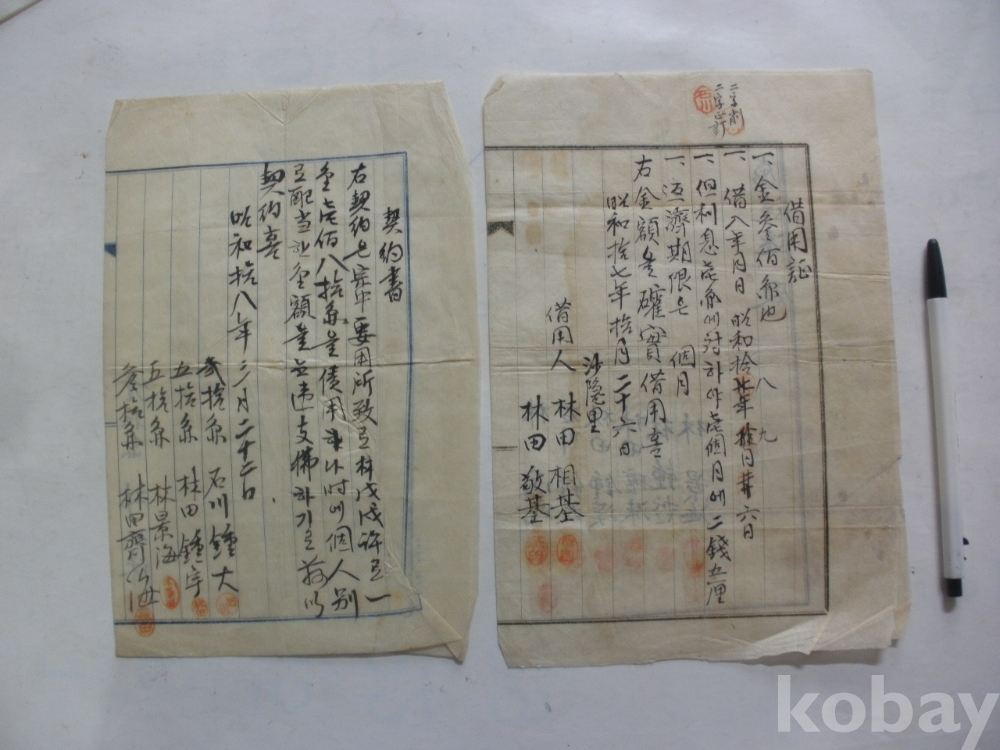 借用証
一、金參佰円也
一、借入年月日 昭和拾 八 年 九 月廿六日
一、但利息은壱円에対하야壱個月에二錢五厘
一、返濟期限은 個月
右金額을確實借用홈
昭和拾七年拾月二十六日
沙隠里
借用人 林田相基
林田敬基
契約書
右契約은宗中要用所致로林 許로一
金壱佰八拾円을債用 時에個人別
로配当한金額을無違支拂하기로茲以
契約喜
昭和拾八年二月二十二日
貳拾円 石川鍾大
五拾円 林田鍾宇
五拾円 林景海
參拾円 林田齊海
kobay